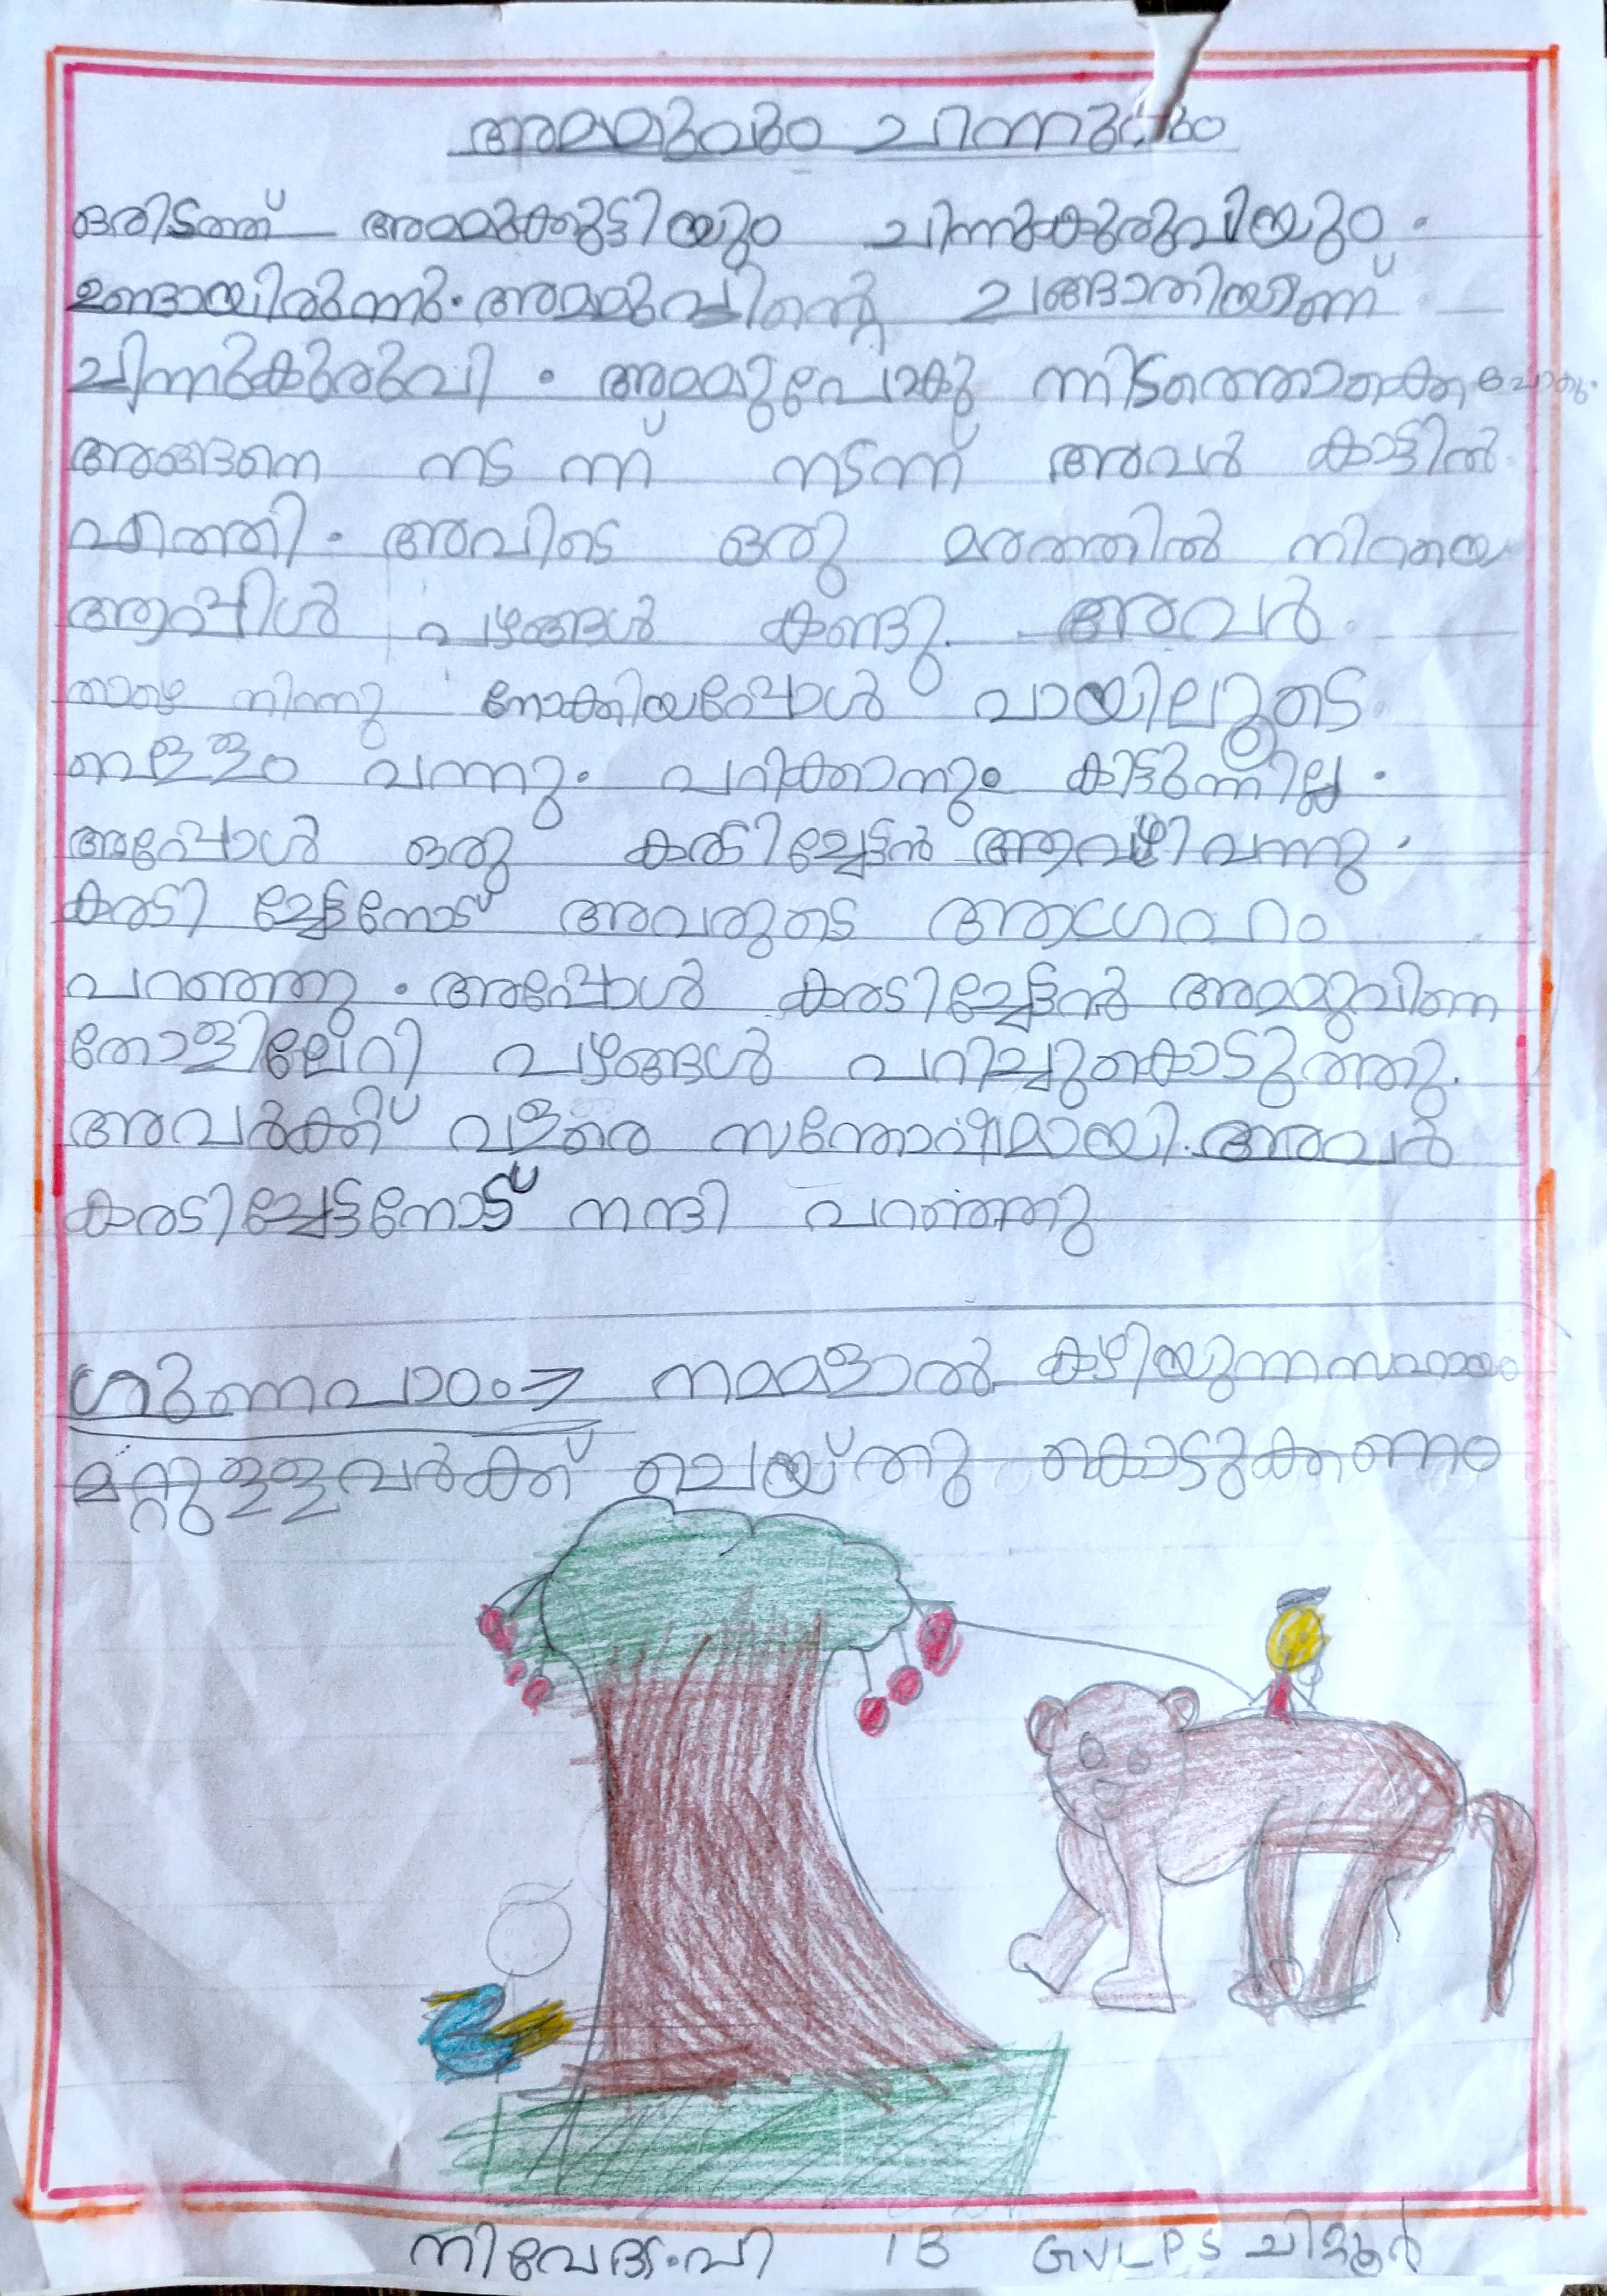 അമ്മുവും ചിന്നുവും
ഒരിടത്ത് അമ്മുക്കുട്ടിയും ചിന്നുക്കുരുവിയും.
ഉണ്ടായിരുന്നു. അമ്മുവിന്റെ ചങ്ങാതിയാണ്
ചിന്നുക്കുരുവി. അമ്മുപോകു ന്നിടത്തൊക്കെ പോകും.
അങ്ങനെ നട ന്ന് നടന്ന് അവർ കാട്ടിൽ
എത്തി. അവിടെ ഒരു മരത്തിൽ നിറയെ
ആപ്പിൾ പഴങ്ങൾ കണ്ടു. അവർ
താഴെ നിന്നു നോക്കിയപ്പോൾ വായിലൂടെ
വെള്ളം വന്നു. പറിക്കാനും കിട്ടുന്നില്ല.
അപ്പോൾ ഒരു കരടിച്ചേട്ടൻ ആവഴി വന്നു.
കരടി ച്ചേട്ടനോട് അവരുടെ ആഗ്രഹം
പറഞ്ഞു. അപ്പോൾ കരടിച്ചേട്ടൻ അമ്മുവിനെ
തോളിലേറി പഴങ്ങൾ പറിച്ചുകൊടുത്തു.
അവർക്ക് വളരെ സന്തോഷമായി. അവർ
കരടിച്ചേട്ടനോട് നന്ദി പറഞ്ഞു
ഗുണപാഠം→ നമ്മളാൽ കഴിയുന്നസഹായം
മറ്റുള്ളവർക്ക് ചെയ്തു കൊടുക്കണം
നിവേദ്യ.വി 1B GVLPS ചിറ്റൂർ